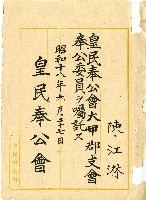 陳江漭
皇民奉公會大甲郡支會
奉公委員ヲ嘱託ス
昭和十八年六月二十七日
皇民奉公會